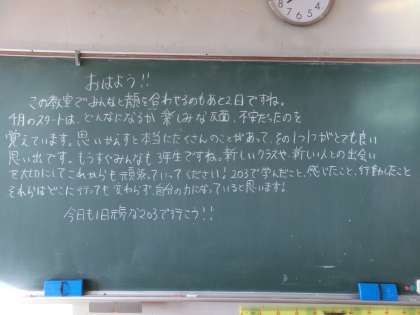 おはよう!!
この教室でみんなと顔を合わせるのもあと2日ですね。
4月のスタートは、どんなになるか楽しみな反面、不安だったのを
覚えています。思いかえすと本当にたくさんのことがあって、その1つ1つがとても良い
思い出です。もうすぐみんなも3年生ですね。新しいクラスや、新しい人との出会い
を大切にしてこれからも頑張っていってください!203で学んだこと、感じたこと、行動したこと
それらはどこに行っても変わらず、自分の力になっていると思います!
今日も1日元気な203で行こう!!